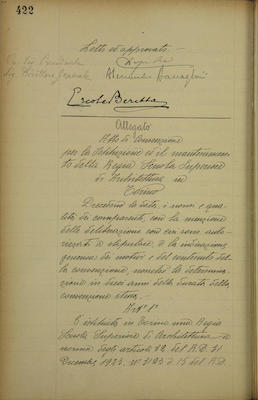 422
Letto ed approvato. —
Ercole Beretta
Allegato
Atto di Convenzione
per la Istituzione ed il mantenimen-
to della Regia Scuola Superiore
di Architettura in
Torino
Precedono la data, i nomi e qua-
lità dei comparenti, con la menzione
delle deliberazioni con cui sono auto-
rizzati a stipulare e la indicazione
generica dei motivi e del contenuto del-
la convenzione, nonché la determina-
zione in dieci anni della durata della
convenzione stessa. —
Art° 1°
È istituita in Torino una Regia
Scuola Superiore di Architettura a
norma degli articoli 12 del R.D. 31
Decembre 1923 n° 3123 e 15 del R.D.